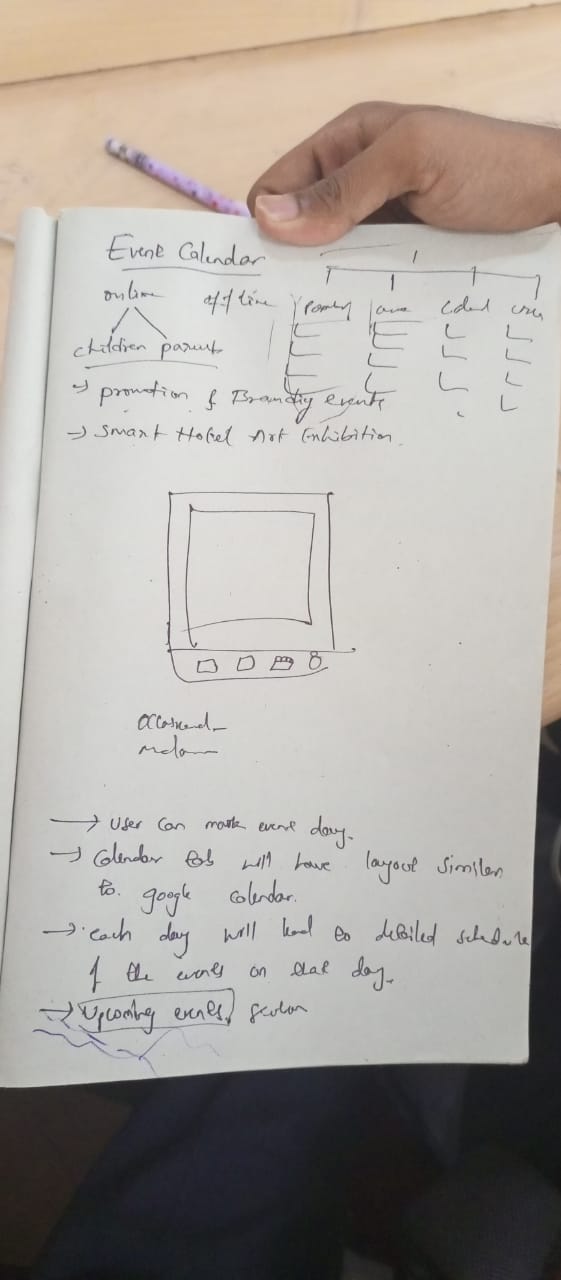 Event Calendar
online offline
children parents
→ promotion & Branding events
→ Smart Hotel Art Exhibition.
→ User can mark event day.
→ Calendar tab will have layout similar
to google calendar.
→ each day will lead to detailed schedule
of the events on that day.
→ Upcoming events section